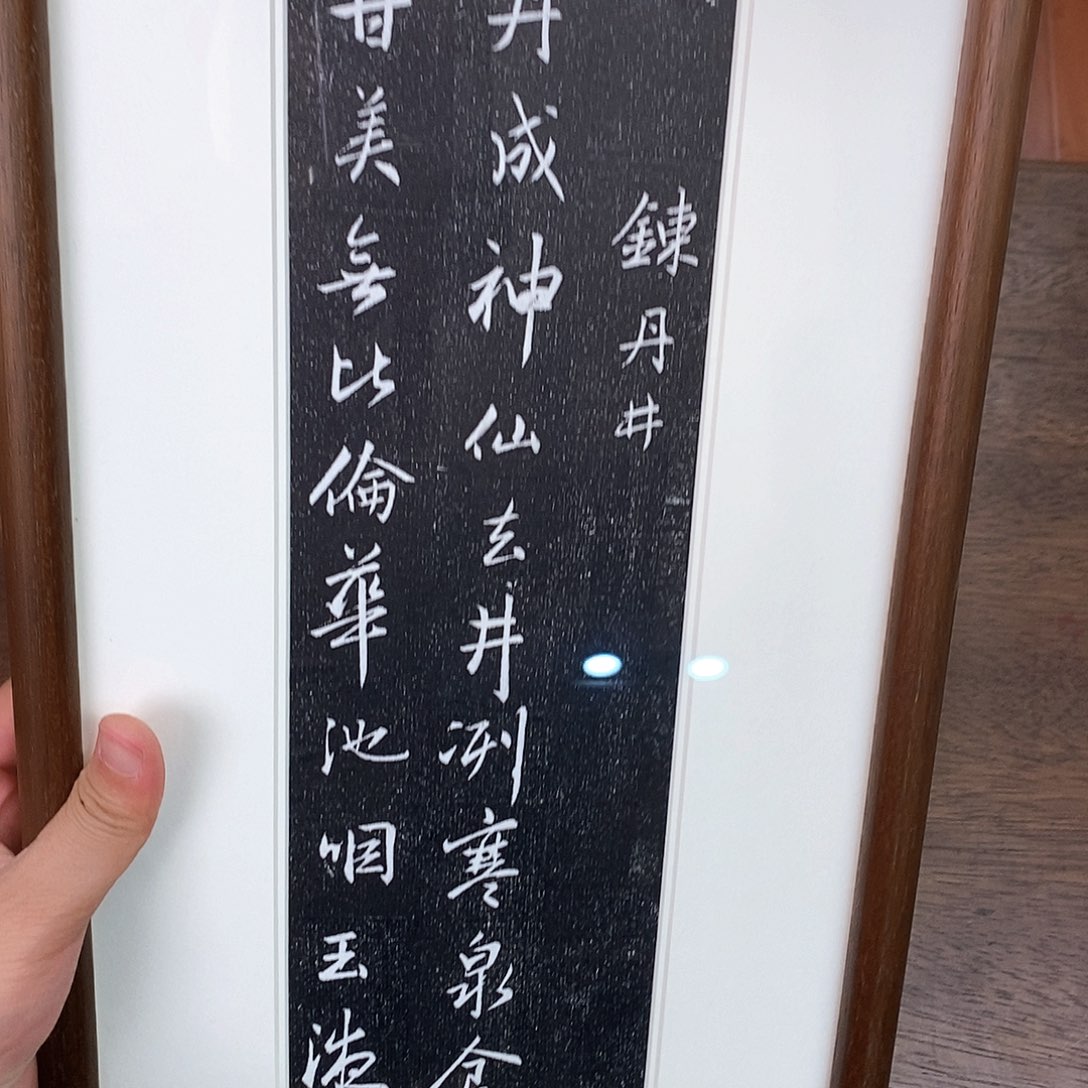 鍊丹井
丹成神仙去井冽寒泉食
甘美無比倫華池咽玉